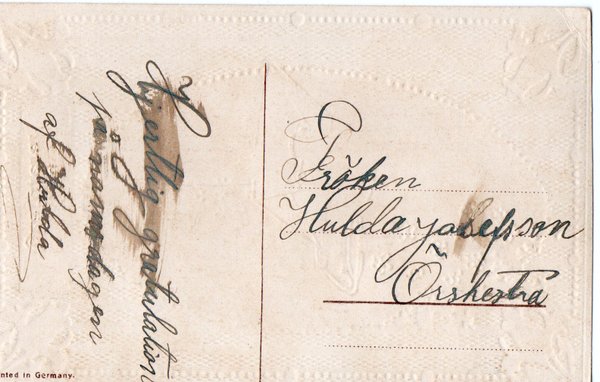 Hjertlig gratulation
på namnsdagen
af Hulda
Fröken
Hulda Josefsson
Örshestra
nted in Germany.